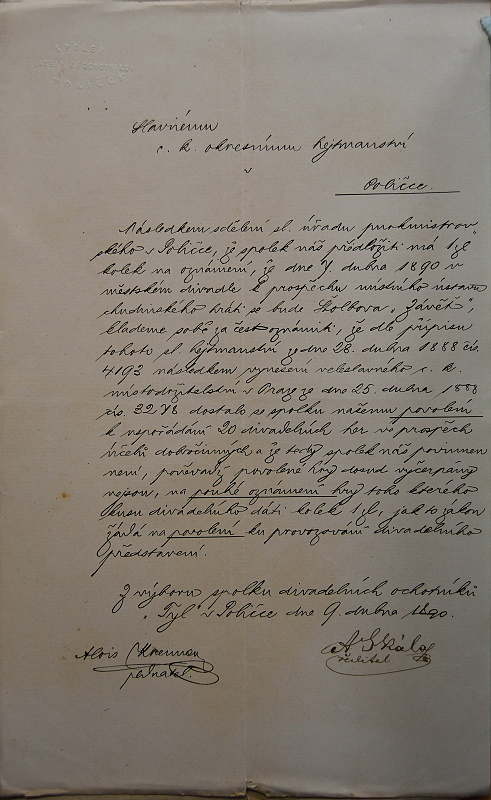 SPOLEK
Slavnému
c. k. okresnímu hejtmanství
v
Poličce.
Následkem sdělení sl. úřadu purkmistrov„
ského v Poličce, že spolek náš předložiti má 1 zl
kolek na oznámení, že dne 7. dubna 1890 v
městském divadle k prospěchu místního ústavu
chudinského hráti se bude Štolbova „Závěť",
klademe sobě za čest oznámiti, že dle přípisu
tohoto sl. hejtmanství ze dne 28. dubna 1888 čís.
4193 následkem vynesení veleslavného c. k.
místodržitelství v Praze ze dne 25. dubna 1888
čís. 3278 dostalo se spolku našemu povolení
k uspořádání 20 divadelních her ve prospěch
účelů dobročinných a že tedy spolek náš povinen
není, poněvadž povolené hry dosud vyčerpány
nejsou, na pouhé oznámení hry toho kterého
kusu divadelního dáti kolek 1 zl, jak to zákon
žádá na povolení ku provozování divadelního
představení.
Z výboru spolku divadelních ochotníků
„Tyl" v Poličce dne 9. dubna 1890.
Alois
jednatel.
ředitel